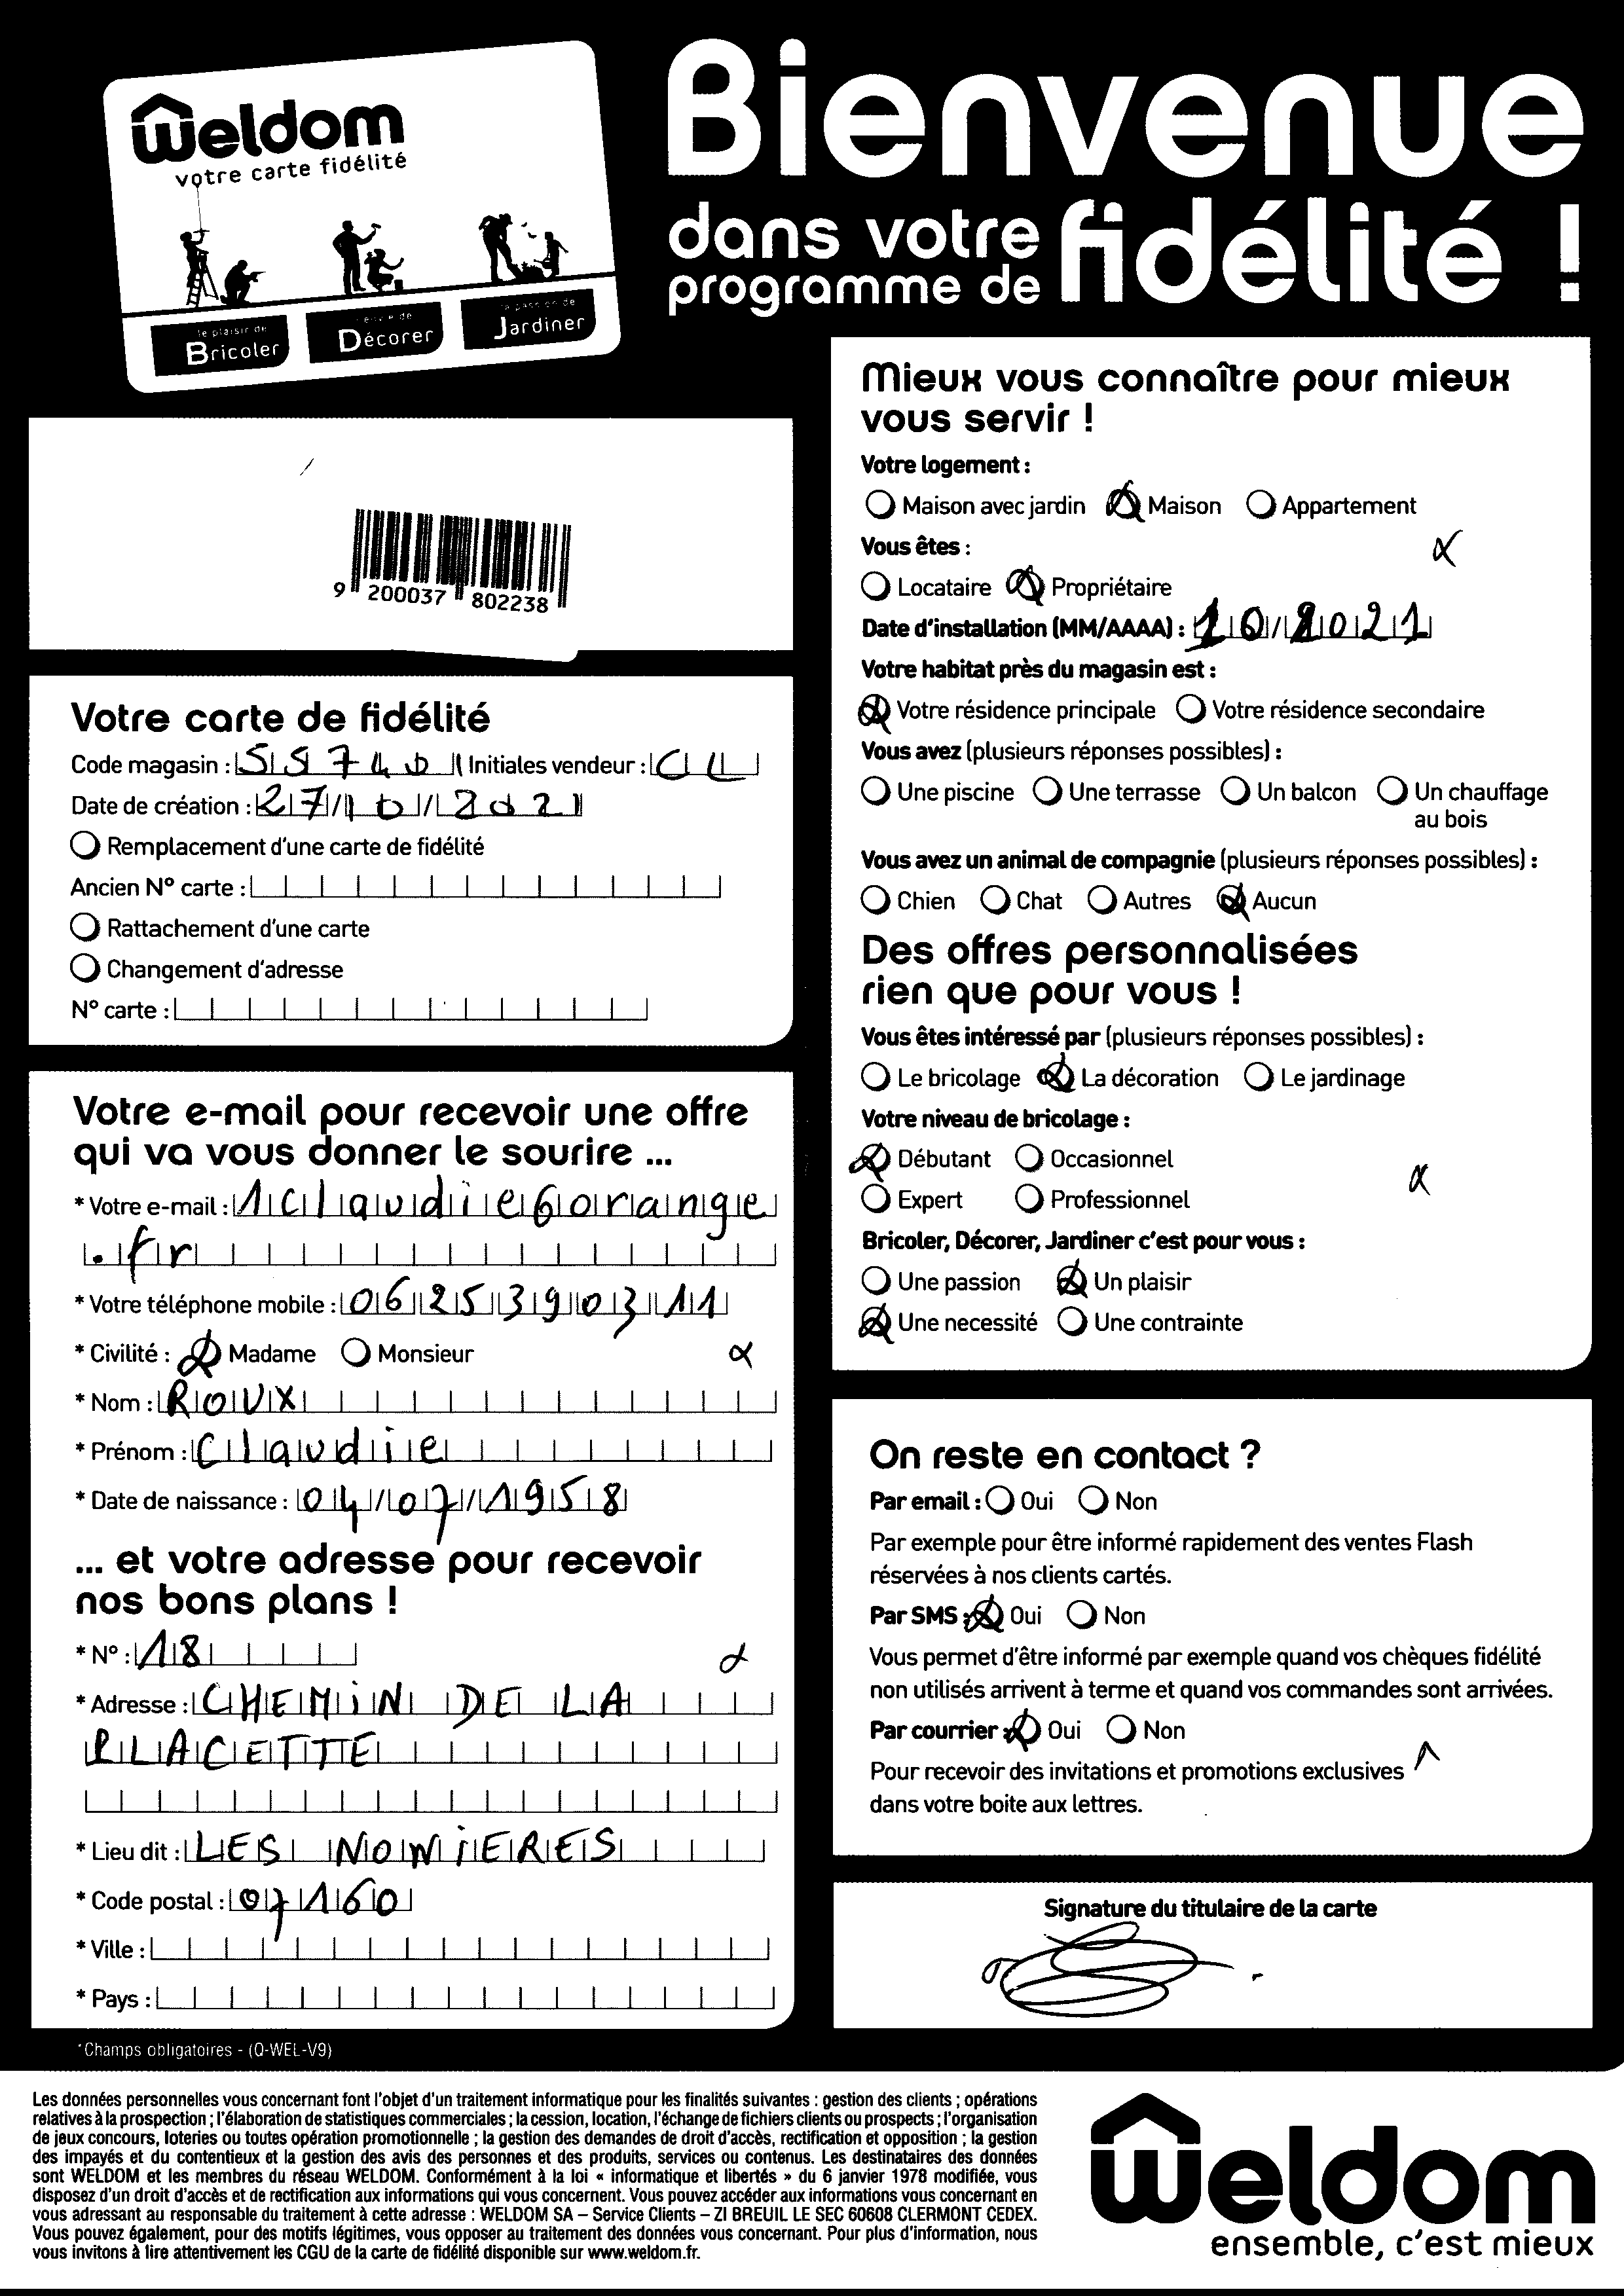 Weldom
votre carte fidélité
le plaisir de
Bricoler
Décorer
Jardiner
Bienvenue
dans votre
programme de fidélité !
9 200037 802238
Votre carte de fidélité
Code magasin : SS740 Initiales vendeur : CL
Date de création : 27/10/2021
Remplacement d'une carte de fidélité
Ancien N° carte :
Rattachement d'une carte
Changement d'adresse
N° carte :
Votre e-mail pour recevoir une offre
qui va vous donner le sourire ...
* Votre e-mail : 1claudie6orange
.fr
* Votre téléphone mobile : 06 25 39 03 11
* Civilité : Madame Monsieur
* Nom : ROUX
* Prénom : Claudie
* Date de naissance : 04/07/1958
... et votre adresse pour recevoir
nos bons plans !
* N° : 18
* Adresse : CHEMIN DE LA
PLACETTE
* Lieu dit : LES NONIERES
* Code postal : 07160
* Ville :
* Pays :
*Champs obligatoires - (Q-WEL-V9)
Mieux vous connaître pour mieux
vous servir !
Votre logement :
Maison avec jardin Maison Appartement
Vous êtes :
Locataire Propriétaire
Date d'installation (MM/AAAA) : 10/2021
Votre habitat près du magasin est :
Votre résidence principale Votre résidence secondaire
Vous avez (plusieurs réponses possibles) :
Une piscine Une terrasse Un balcon Un chauffage
au bois
Vous avez un animal de compagnie (plusieurs réponses possibles) :
Chien Chat Autres Aucun
Des offres personnalisées
rien que pour vous !
Vous êtes intéressé par (plusieurs réponses possibles) :
Le bricolage La décoration Le jardinage
Votre niveau de bricolage :
Débutant Occasionnel
Expert Professionnel
Bricoler, Décorer, Jardiner c'est pour vous :
Une passion Un plaisir
Une necessité Une contrainte
On reste en contact ?
Par email : Oui Non
Par exemple pour être informé rapidement des ventes Flash
réservées à nos clients cartés.
Par SMS : Oui Non
Vous permet d'être informé par exemple quand vos chèques fidélité
non utilisés arrivent à terme et quand vos commandes sont arrivées.
Par courrier : Oui Non
Pour recevoir des invitations et promotions exclusives
dans votre boite aux lettres.
Signature du titulaire de la carte
Les données personnelles vous concernant font l'objet d'un traitement informatique pour les finalités suivantes : gestion des clients ; opérations
relatives à la prospection ; l'élaboration de statistiques commerciales ; la cession, location, l'échange de fichiers clients ou prospects ; l'organisation
de jeux concours, loteries ou toutes opération promotionnelle ; la gestion des demandes de droit d'accès, rectification et opposition ; la gestion
des impayés et du contentieux et la gestion des avis des personnes et des produits, services ou contenus. Les destinataires des données
sont WELDOM et les membres du réseau WELDOM. Conformément à la loi « informatique et libertés » du 6 janvier 1978 modifiée, vous
disposez d'un droit d'accès et de rectification aux informations qui vous concernent. Vous pouvez accéder aux informations vous concernant en
vous adressant au responsable du traitement à cette adresse : WELDOM SA – Service Clients – ZI BREUIL LE SEC 60608 CLERMONT CEDEX.
Vous pouvez également, pour des motifs légitimes, vous opposer au traitement des données vous concernant. Pour plus d'information, nous
vous invitons à lire attentivement les CGU de la carte de fidélité disponible sur www.weldom.fr.
Weldom
ensemble, c'est mieux